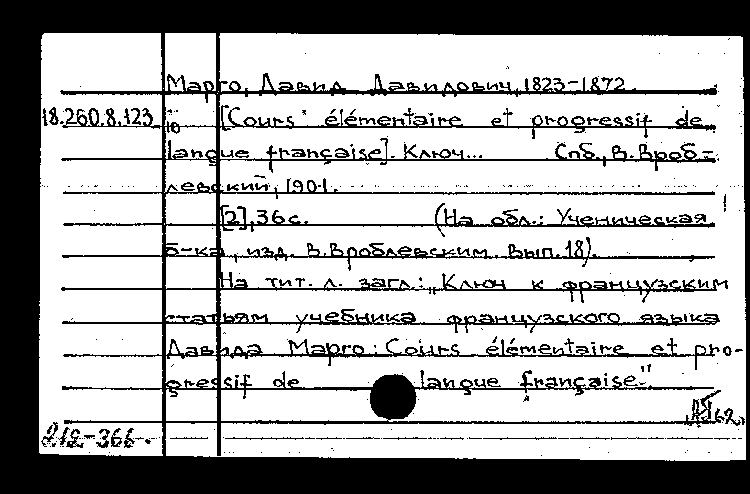 Марго, Давид Давидович, 1823-1872.
18.260.8.123 10 [Cours élémentaire et progressif de
langue française]. Ключ... Спб., В. Вроб-
левский, 1901.
[2], 36 с. (На обл.: Ученическая
б-ка, изд. В. Вроблевским. Вып. 18).
На тит. л. загл.: „Ключ к французским
статьям учебника французского языка
Давида Марго: Cours élémentaire et pro-
gressif de langue française".
62
212-366.